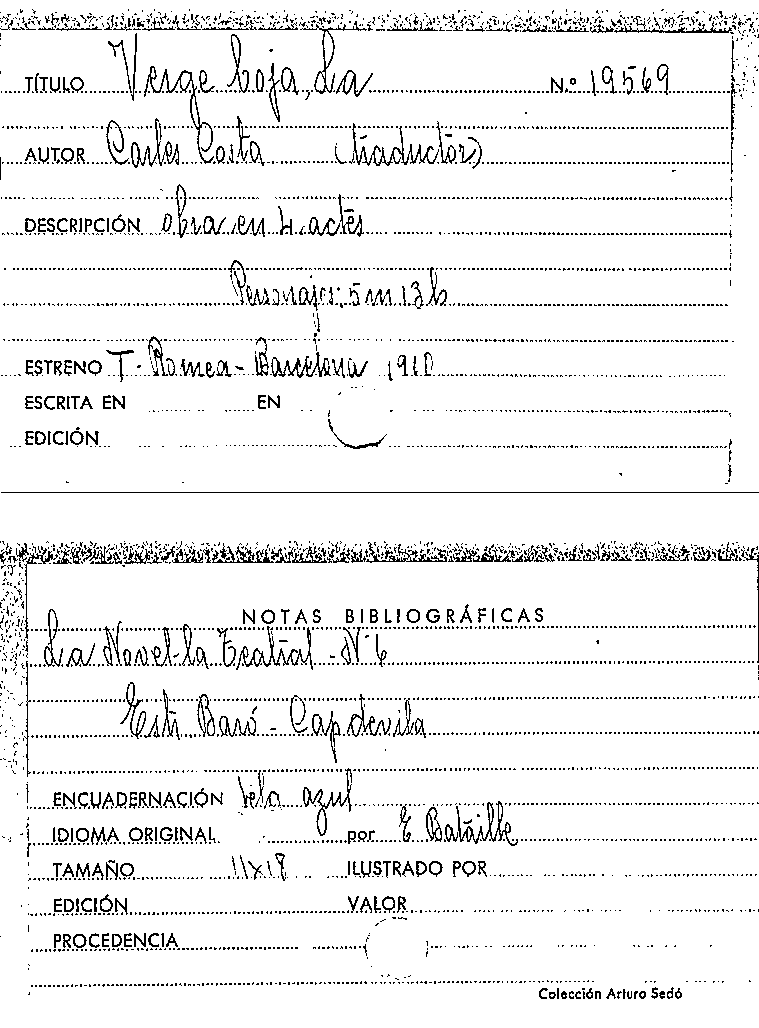 TÍTULO Verge boja, La N.º 19569
AUTOR Carles Costa (traductor)
DESCRIPCIÓN obra en 4 actes
Personajes: 5 m 13 h
ESTRENO T. Romea - Barcelona 1910
ESCRITA EN EN
EDICIÓN
NOTAS BIBLIOGRÁFICAS
La Novel-la Teatral - Nº 6
Baró - Capdevila
ENCUADERNACIÓN tela azul
IDIOMA ORIGINAL por E Bataille
TAMAÑO 11x18 ILUSTRADO POR
EDICIÓN VALOR
PROCEDENCIA
Colección Arturo Sedó